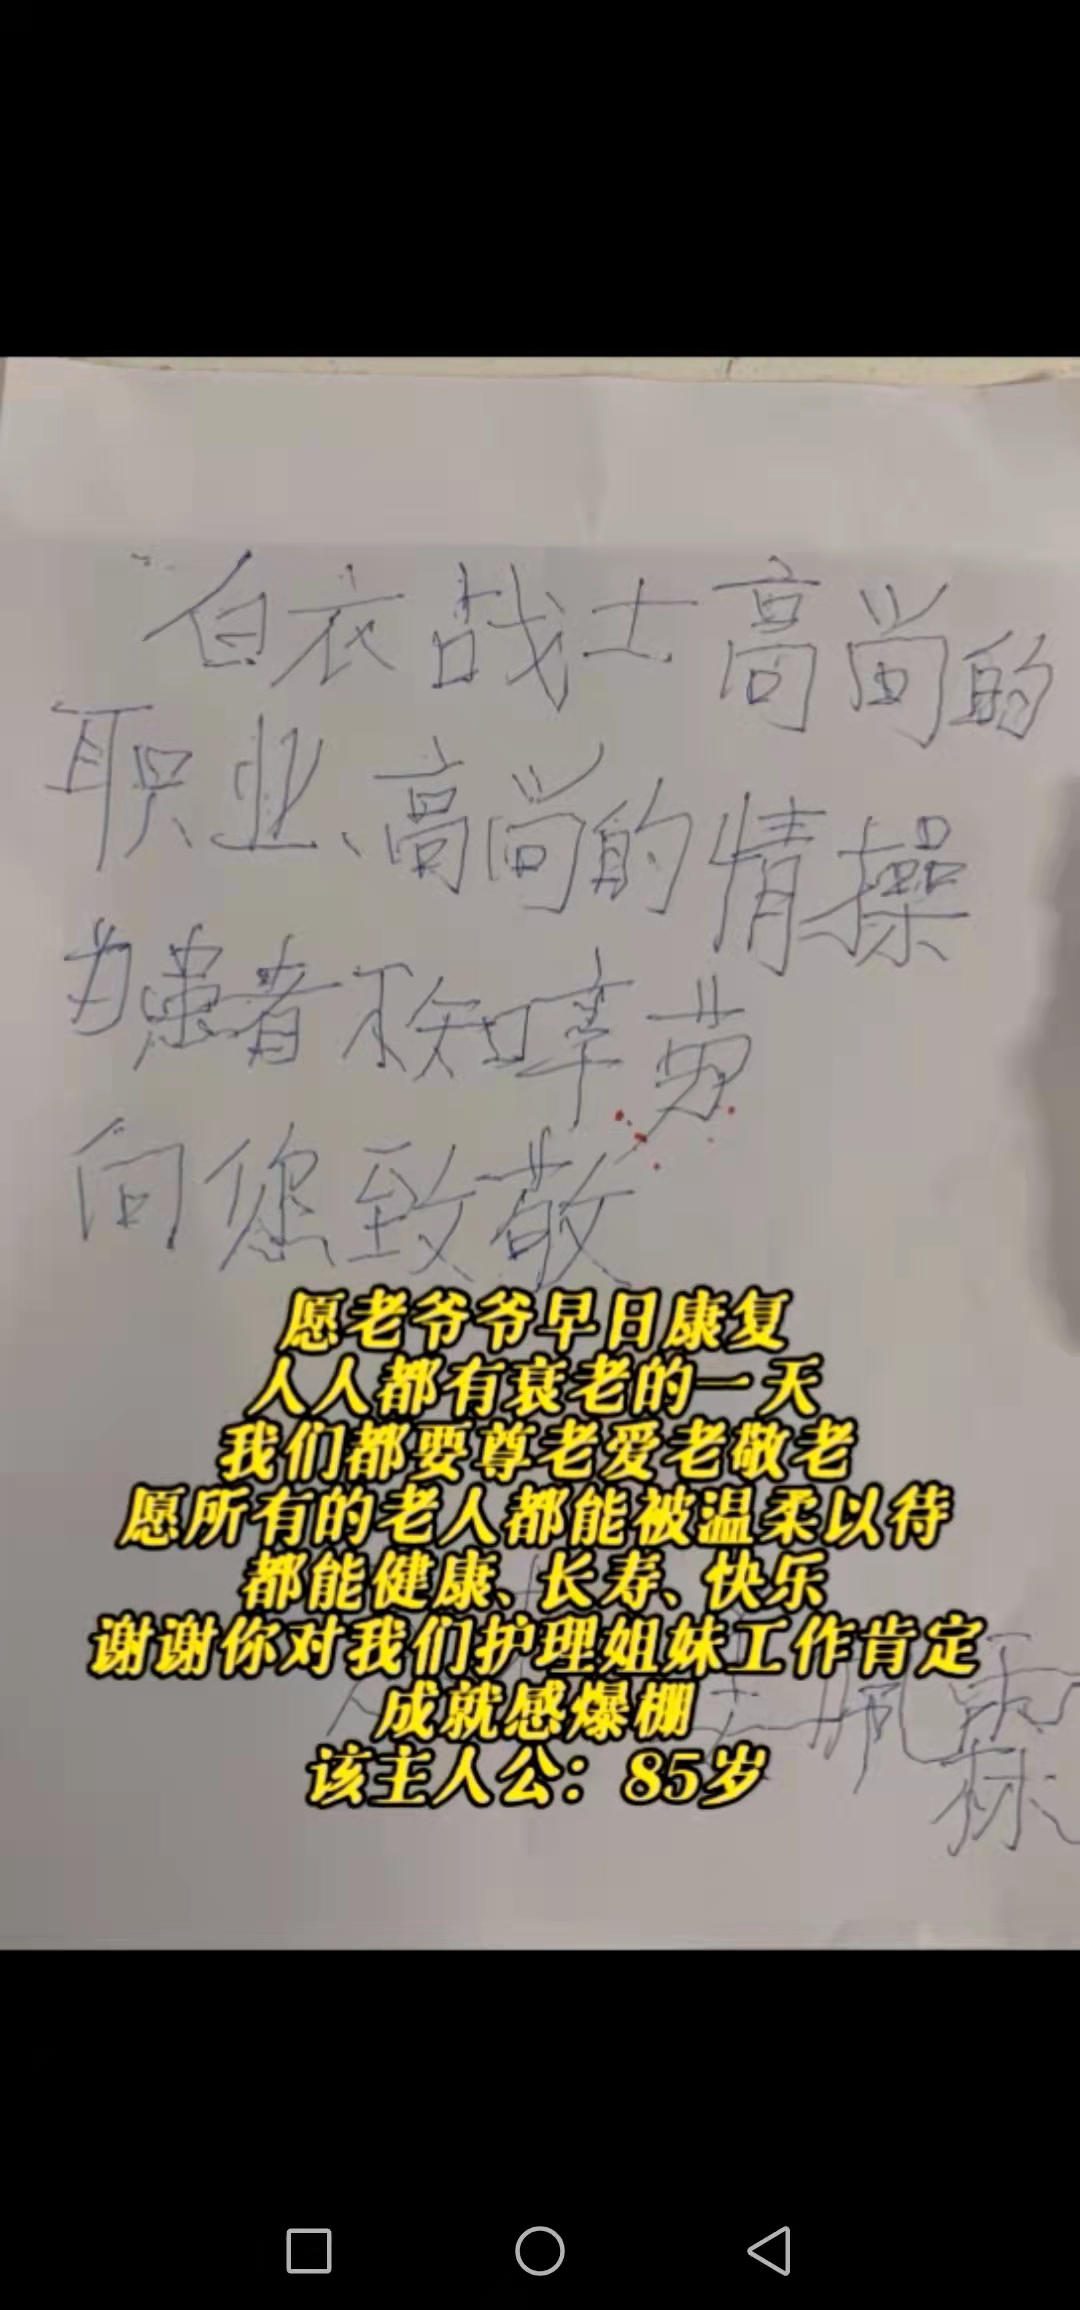 白衣战士高尚的
职业、高尚的情操
为患者不知辛劳
向您致敬
愿老爷爷早日康复
人人都有衰老的一天
我们都要尊老爱老敬老
愿所有的老人都能被温柔以待
都能健康、长寿、快乐
谢谢你对我们护理姐妹工作肯定
成就感爆棚
该主人公：85岁